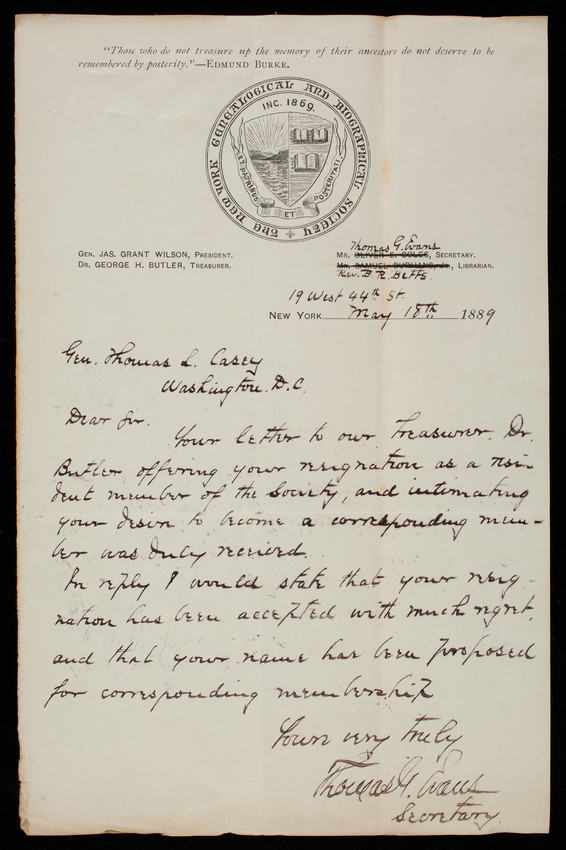 "Those who do not treasure up the memory of their ancestors do not deserve to be
remembered by posterity."—EDMUND BURKE.
THE NEW YORK GENEALOGICAL AND BIOGRAPHICAL SOCIETY
INC. 1869.
ET PATRIBUS
ET
POSTERITATI
GEN. JAS. GRANT WILSON, PRESIDENT.
DR. GEORGE H. BUTLER, TREASURER.
Thomas G. Evans
MR. OLIVER E. COLES, SECRETARY.
MR. SAMUEL BURHANS, JR., LIBRARIAN.
Rev. B. R. Betts
19 West 44th St.
NEW YORK May 18th 1889
Gen. Thomas L. Casey
Washington D.C.
Dear Sir.
Your letter to our Treasurer Dr.
Butler, offering your resignation as a resi-
dent member of the Society, and intimating
your desire to become a corresponding mem-
ber was duly received.
In reply I would state that your resig-
nation has been accepted with much regret,
and that your name has been proposed
for corresponding membership
Yours very truly
Thomas G. Evans
Secretary.